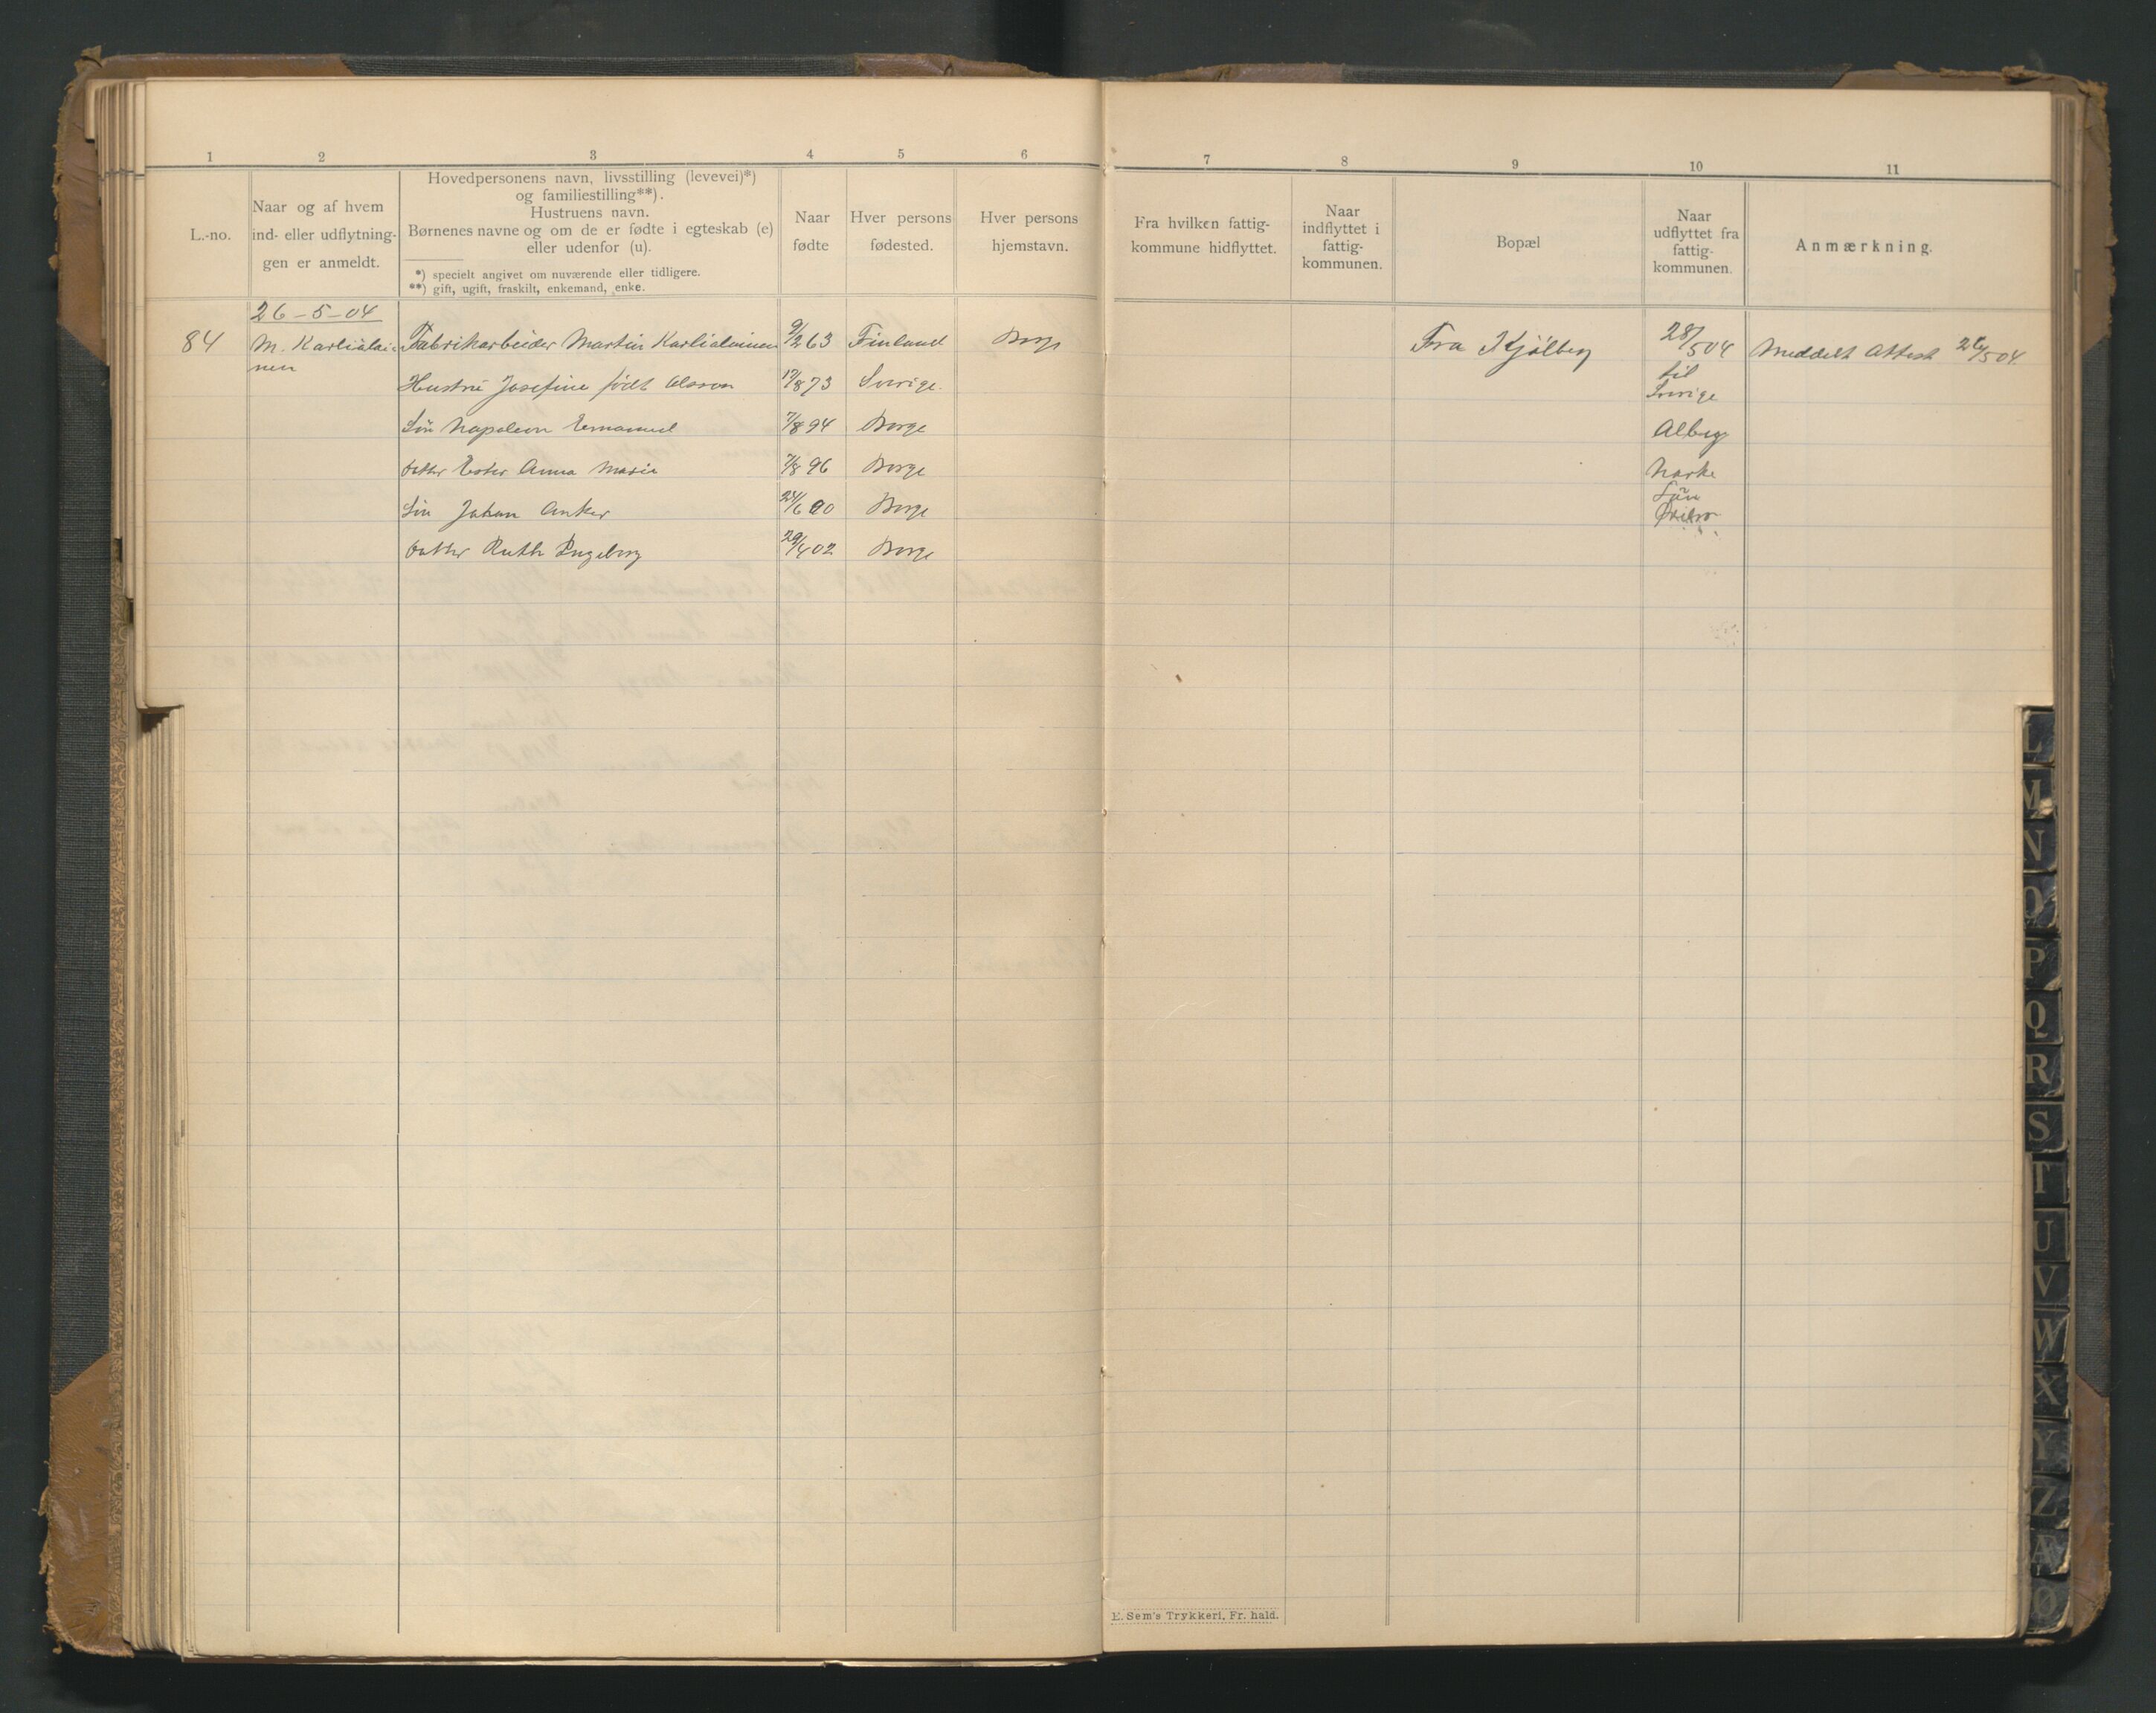 1 2 3 4 5 6 7 8 9 10 11
L.-no.
Naar og af hvem
ind- eller udflytnin-
gen er anmeldt.
Hovedpersonens navn, livsstilling (levevei)*)
og familiestilling**).
Hustruens navn.
Børnenes navne og om de er fødte i egteskab (e)
eller udenfor (u).
*) specielt angivet om nuværende eller tidligere.
**) gift, ugift, fraskilt, enkemand, enke.
Naar
fødte
Hver persons
fødested.
Hver persons
hjemstavn.
Fra hvilken fattig-
kommune hidflyttet.
Naar
indflyttet i
fattig-
kommunen.
Bopæl
Naar
udflyttet fra
fattig-
kommunen.
Anmærkning.
26-5-04
84 M. Karlialai- Fabrikarbeider Martin Karlialainen 9/2 63 Finland Borge Fra Kjølberg 28/5 04 Meddelt Attest 26/5 04.
nen
til
Hustru Josefine født Olsson 17/8 73 Sverige. Sverige
Søn Napoleon Emanuel 7/8 94 Borge
Datter Ester Anna Marie 7/8 96 Borge
Län
Søn Johan Anker 24/6 00 Borge
Datter Ruth Ingeborg 29/4 02 Borge
L
M
N
O
P
Q
R
S
T
U
V
W
X
Y
Z
Æ
Ø
E. Sem's Trykkeri, Fr. hald.